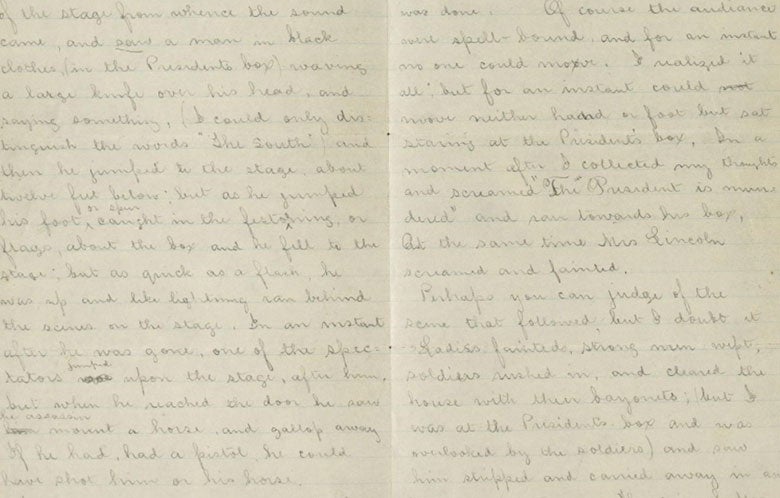 of the stage from whence the sound
came, and saw a man in black
clothes, (in the Presidents box) waving
a large knife over his head, and
saying something, (I could only dis-
tinguish the words "The South") and
then he jumped to the stage, about
twelve feet below; but as he jumped
his foot, or spur caught in the festooning, or
flags, about the box and he fell to the
stage; but as quick as a flash, he
was up and like lightning ran behind
the scenes on the stage. In an instant
after he was gone, one of the spec-
tators jumped upon the stage, after him,
but when he reached the door he saw
the assassin mount a horse, and gallop away
If he had, had a pistol, he could
have shot him or his horse.
was done. Of course the audiance
were spell-bound, and for an instant
no one could move. I realized it
all; but for an instant could not
move neither hand or foot but sat
staring at the President's box. In a
moment after I collected my thoughts
and screamed "The President is mur
dered" and ran towards his box,
At the same time Mrs Lincoln
screamed and fainted.
Perhaps you can judge of the
scene that followed, but I doubt it
Ladies fainted, strong men wept,
soldiers rushed in, and cleared the
house with their bayonets; (but I
was at the Presidents box and was
overlooked by the soldiers) and saw
him stripped and carried away in an